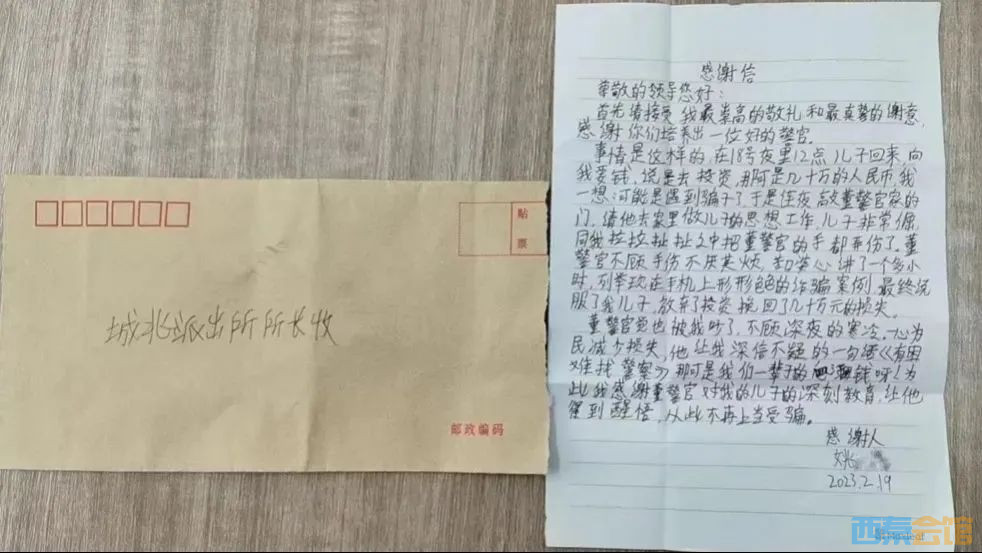 贴
票
城北派出所所长收
邮政编码
感谢信
尊敬的领导您好:
首先请接受我最崇高的敬礼和最真挚的谢意,
感谢你们培养出一位好的警官。
事情是这样的,在18号夜里12点儿子回来,向
我要钱,说是去投资,那可是几十万的人民币,我
一想:可能是遇到骗子了,于是连夜敲董警官家的
门,请他去家里做儿子的思想工作,儿子非常倔,
同我拉拉扯扯之中把董警官的手都弄伤了。董
警官不顾手伤不厌其烦,苦口婆心讲了一个多小
时,列举现在手机上形形色色的诈骗案例,最终说
服了我儿子,放弃了投资挽回了几十万元的损失。
董警官觉也被我吵了,不顾深夜的寒冷,一心为
民减少损失,他让我深信不疑的一句话《有困
难找警察》那可是我们一辈子的钱呀!为
此我感谢董警官对我的儿子的深刻教育,让他
得到醒悟,从此不再上当受骗。
感谢人
姚
2023.2.19
西秦会馆